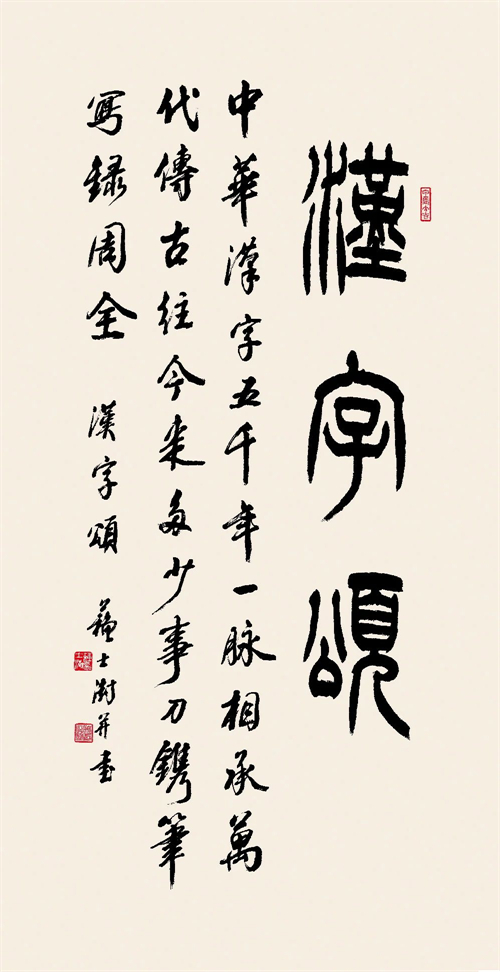 漢字頌
中華漢字五千年一脉相承萬
代傳古往今来多少事刀鐫筆
寫録周全 漢字頌 蘇士澍并书